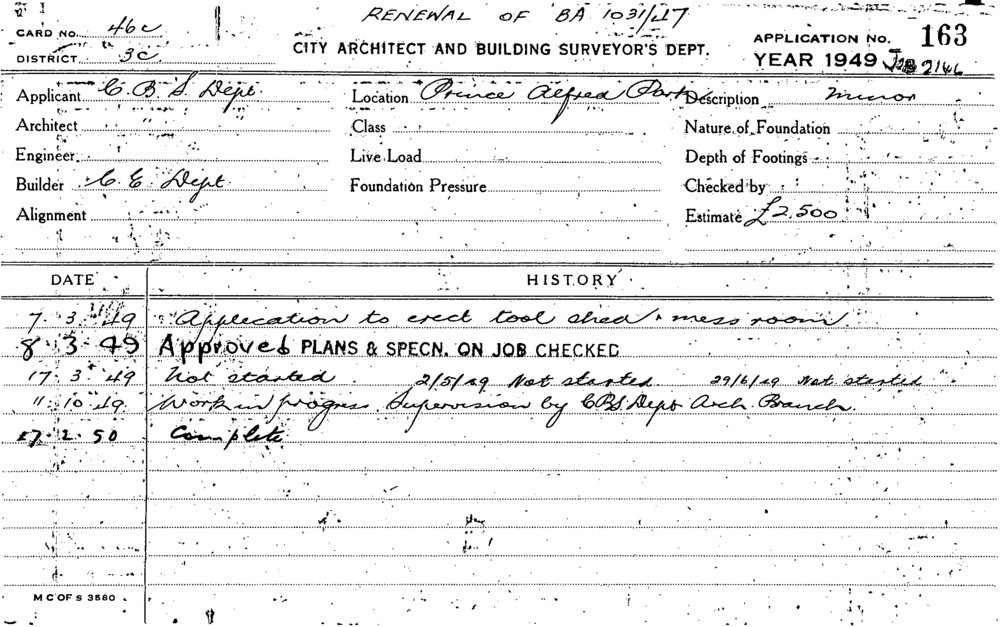 RENEWAL OF BA 1031/47
CARD NO. 46c
DISTRICT 3c
CITY ARCHITECT AND BUILDING SURVEYOR'S DEPT.
APPLICATION NO. 163
YEAR 1949 JOB 2146
Applicant C. B. S. Dept. Location Prince Alfred Park Description minor
Architect " " " Class Nature of Foundation
Engineer Live Load Depth of Footings
Builder C. E. Dept. Foundation Pressure Checked by
Alignment Estimate £2,500
DATE HISTORY
7 3 49 Application to erect tool shed & mess room
8 3 49 Approved PLANS & SPECN. ON JOB CHECKED
17 3 49 Not started 2/5/49 Not started. 29/6/49 Not started
11 10 49 Work in progress. Supervision by CBS Dept Arch Branch.
27. 2. 50 Complete
M C OF S 3580